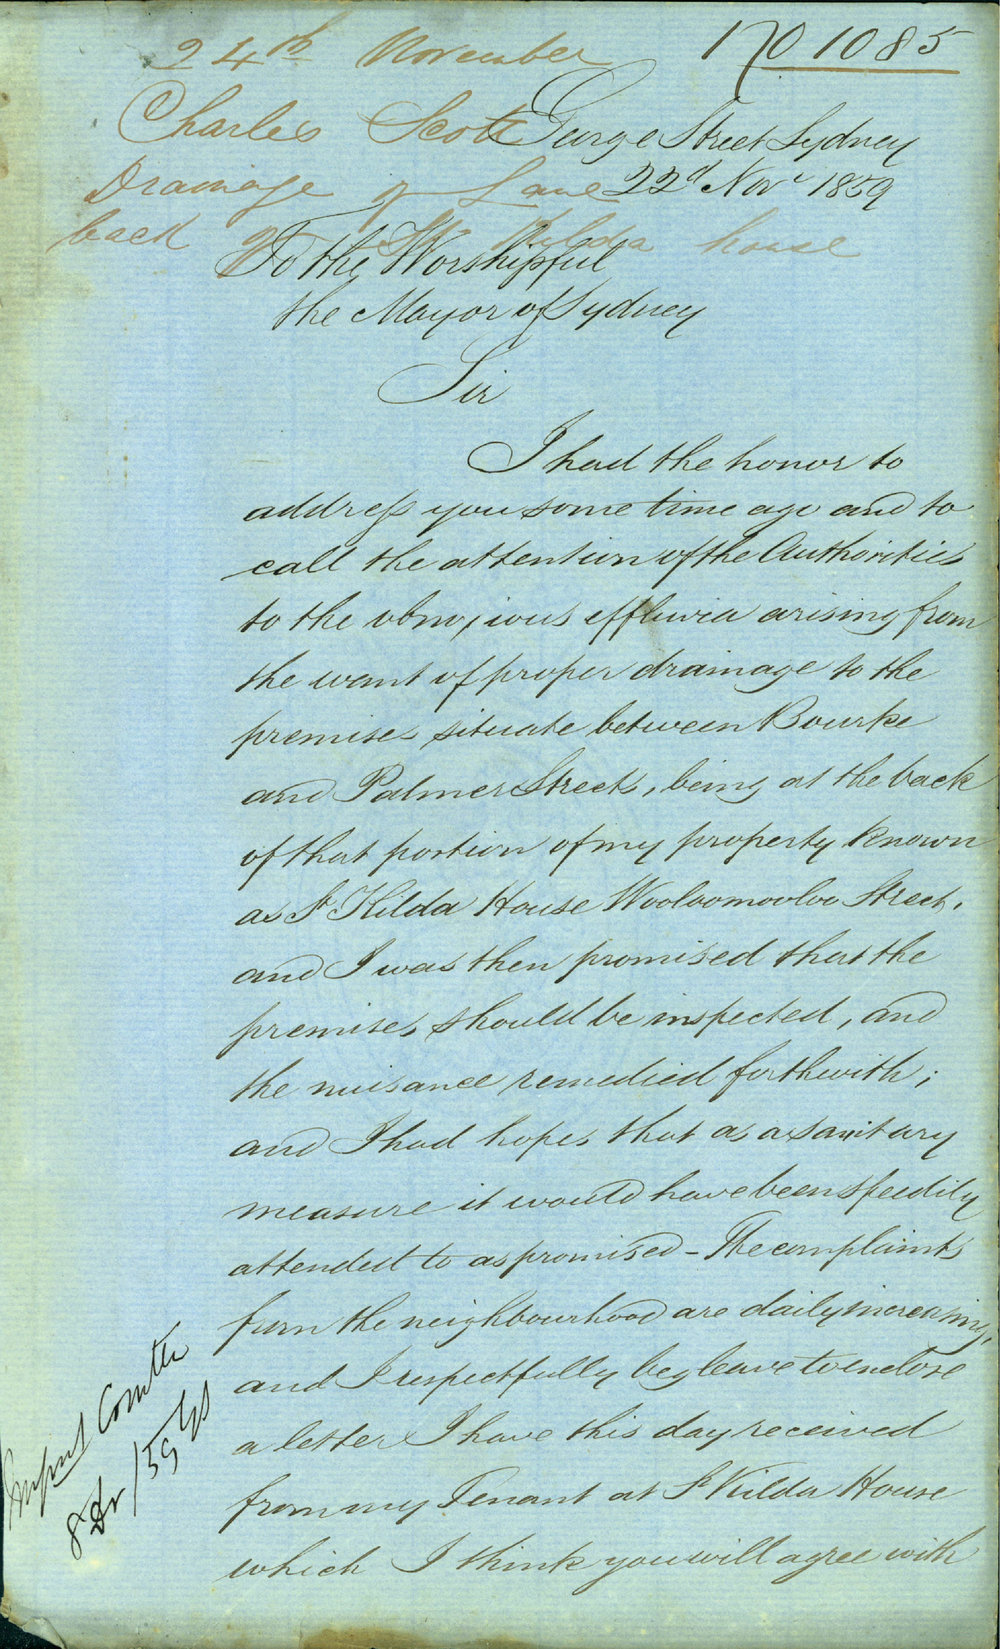 No 1085
24th November
Charles Scott
Drainage of Lane
back of St Kilda house
George Street Sydney
22d Novr 1859
To the Worshipful
the Mayor of Sydney
Sir
I had the honor to
address you some time ago and to
call the attention of the Authorities
to the obnoxious effluvia arising from
the want of proper drainage to the
premises situate between Bourke
and Palmer Streets, being at the back
of that portion of my property known
as St Kilda House Wooloomooloo Street,
and I was then promised that the
premises should be inspected, and
the nuisance remedied forthwith;
and I had hopes that as a sanitary
measure it would have been speedily
attended to as promised - The complaints
from the neighbourhood are daily increasing,
and I respectfully beg leave to enclose
a letter I have this day received
from my Tenant at St Kilda House
which I think you will agree with
Impvt Comttee
8 Dr /59